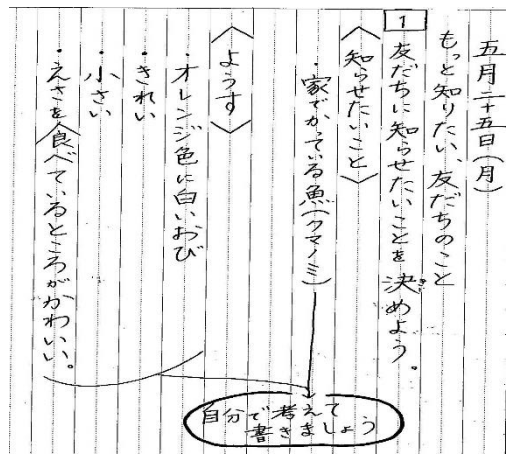 五月二十五日(月)
もっと知りたい、友だちのこと
1 友だちに知らせたいことを決めよう。
き
〈知らせたいこと〉
・家でかっている魚(クマノミ)
〈ようす〉
・オレンジ色に白いおび
・きれい
・小さい
・えさを食べているところがかわいい。
自分で考えて
書きましょう